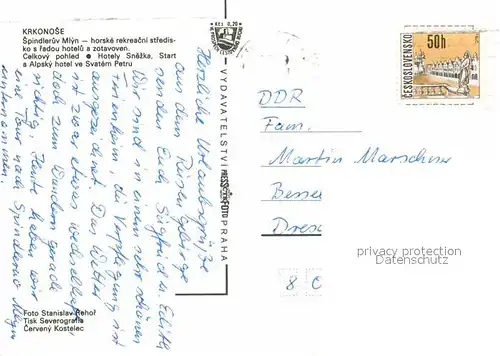 KRKONOŠE
Špindlerův Mlýn — horské rekreační středis-
ko s řadou hotelů a zotavoven.
Celkový pohled ● Hotely Sněžka, Start
a Alpský hotel ve Svatém Petru
Kčs 0,70
VYDAVATELSTVÍ PRESSFOTO PRAHA
ČESKOSLOVENSKO
50h
Herzliche Urlaubsgrüße
aus dem Riesengebirge
senden Euch Siegfried u. Edith
Wir sind in einem sehr schönen
Ferienheim, die Verpflegung ist
ausgezeichnet. Das Wetter
ist zwar etwas wechselhaft,
doch zum Wandern gerade
richtig. Heute haben wir
eine Tour nach Spindleruv Mlyn
unternommen.
DDR
Fam.
Martin Marschner
Dres
8
privacy protection
Datenschutz
Foto Stanislav Řehoř
Tisk Severografia
Červený Kostelec